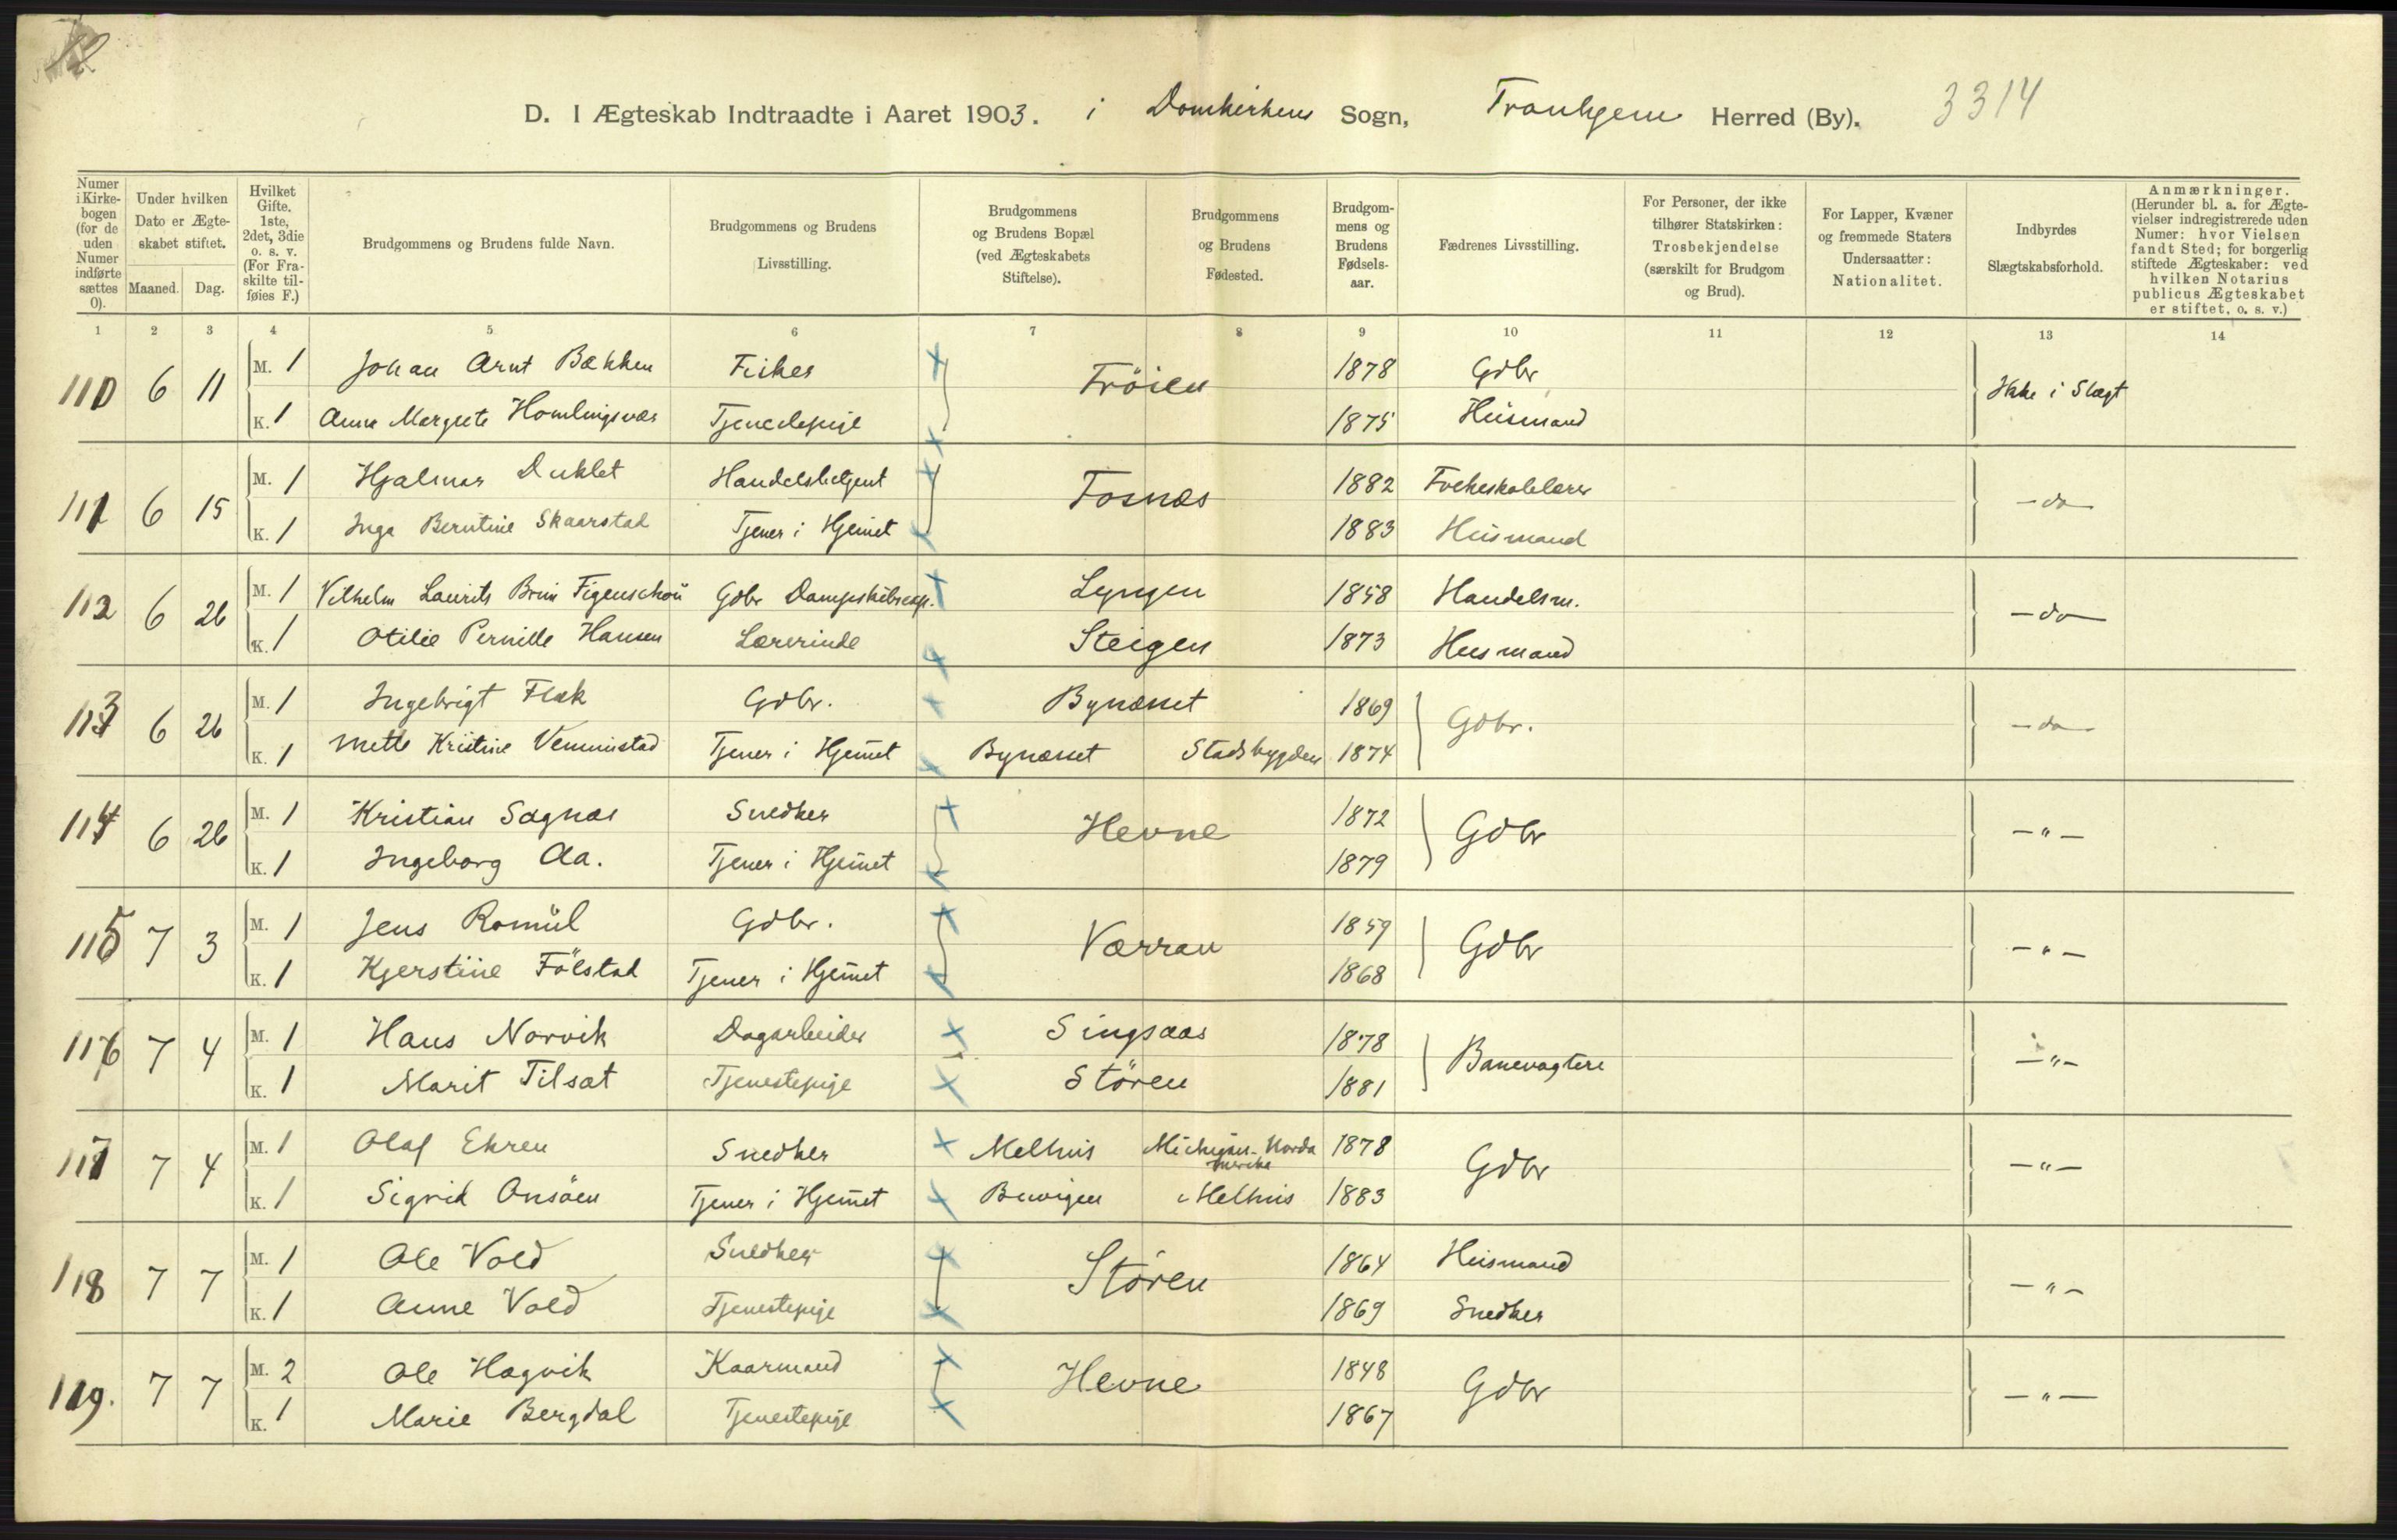 12
D. I Ægteskab Indtraadte i Aaret 1903. i Domkirkens Sogn, Tronhjem Herred (By). 3314
Numer i Kirkebogen (for de uden Numer indførte sættes 0). Under hvilken Dato er Ægteskabet stiftet. Maaned. Dag. Hvilket Gifte, 1ste, 2det, 3die o. s. v. (For Fraskilte tilføies F.) Brudgommens og Brudens fulde Navn. Brudgommens og Brudens Livsstilling. Brudgommens og Brudens Bopæl (ved Ægteskabets Stiftelse). Brudgommens og Brudens Fødested. Brudgommens og Brudens Fødselsaar. Fædrenes Livsstilling. For Personer, der ikke tilhører Statskirken: Trosbekjendelse (særskilt for Brudgom og Brud). For Lapper, Kvæner og fremmede Staters Undersaatter: Nationalitet. Indbyrdes Slægtskabsforhold. Anmærkninger. (Herunder bl. a. for Ægtevielser indregistrerede uden Numer: hvor Vielsen fandt Sted; for borgerlig stiftede Ægteskaber: ved hvilken Notarius publicus Ægteskabet er stiftet, o. s. v.)
1 2 3 4 5 6 7 8 9 10 11 12 13 14
110 6 11 M. 1 Johan Arnt Bækken Fisker Fröien 1878 Gdbr Ikke i Slægt
K. 1 Anne Margrete Homlingsvær Tjenestepige 1875 Husmand
111 6 15 M. 1 Hjalmar Duklet Handelsbetjent Fosnæs 1882 Folkeskolelærer - do -
K. 1 Inga Berntine Skaarstad Tjener i Hjemmet 1883 Husmand
112 6 26 M. 1 Vilhelm Laurits Brun Figenschou Gdbr Dampskibsexp. Lyngen 1858 Handelsm. - do -
K. 1 Otilie Pernille Hansen Lærerinde Steigen 1873 Husmand
113 6 26 M. 1 Ingebrigt Flak Gdbr. Bynæsset 1869 Gdbr. - do -
K. 1 Mette Kristine Vemmistad Tjener i Hjemet Bynæsset Stadsbygden 1874
114 6 26 M. 1 Kristian Sagnæs Snedker Hevne 1872 Gdbr - " -
K. 1 Ingeborg Aa. Tjener i Hjemet 1879
115 7 3 M. 1 Jens Romül Gdbr. Værran 1859 Gdbr - " -
K. 1 Kjerstine Fölstad Tjener i Hjemet 1868
116 7 4 M. 1 Hans Norvik Dagarbeider Singsaas 1878 Banevogtere - " -
K. 1 Marit Tilsæt Tjenestepige Stören 1881
117 7 4 M. 1 Olaf Ehren Snedker Melhus Michigan-Nordamerika 1878 Gdbr - " -
K. 1 Sigrid Onsöien Tjener i Hjemet Buvigen Melhus 1883
118 7 7 M. 1 Ole Vold Snedker Stören 1864 Husmand - " -
K. 1 Anne Vold Tjenestepige 1869 Snedker
119. 7 7 M. 2 Ole Hagvik Kaarmand Hevne 1848 Gdbr - " -
K. 1 Marie Bergdal Tjenestepige 1867